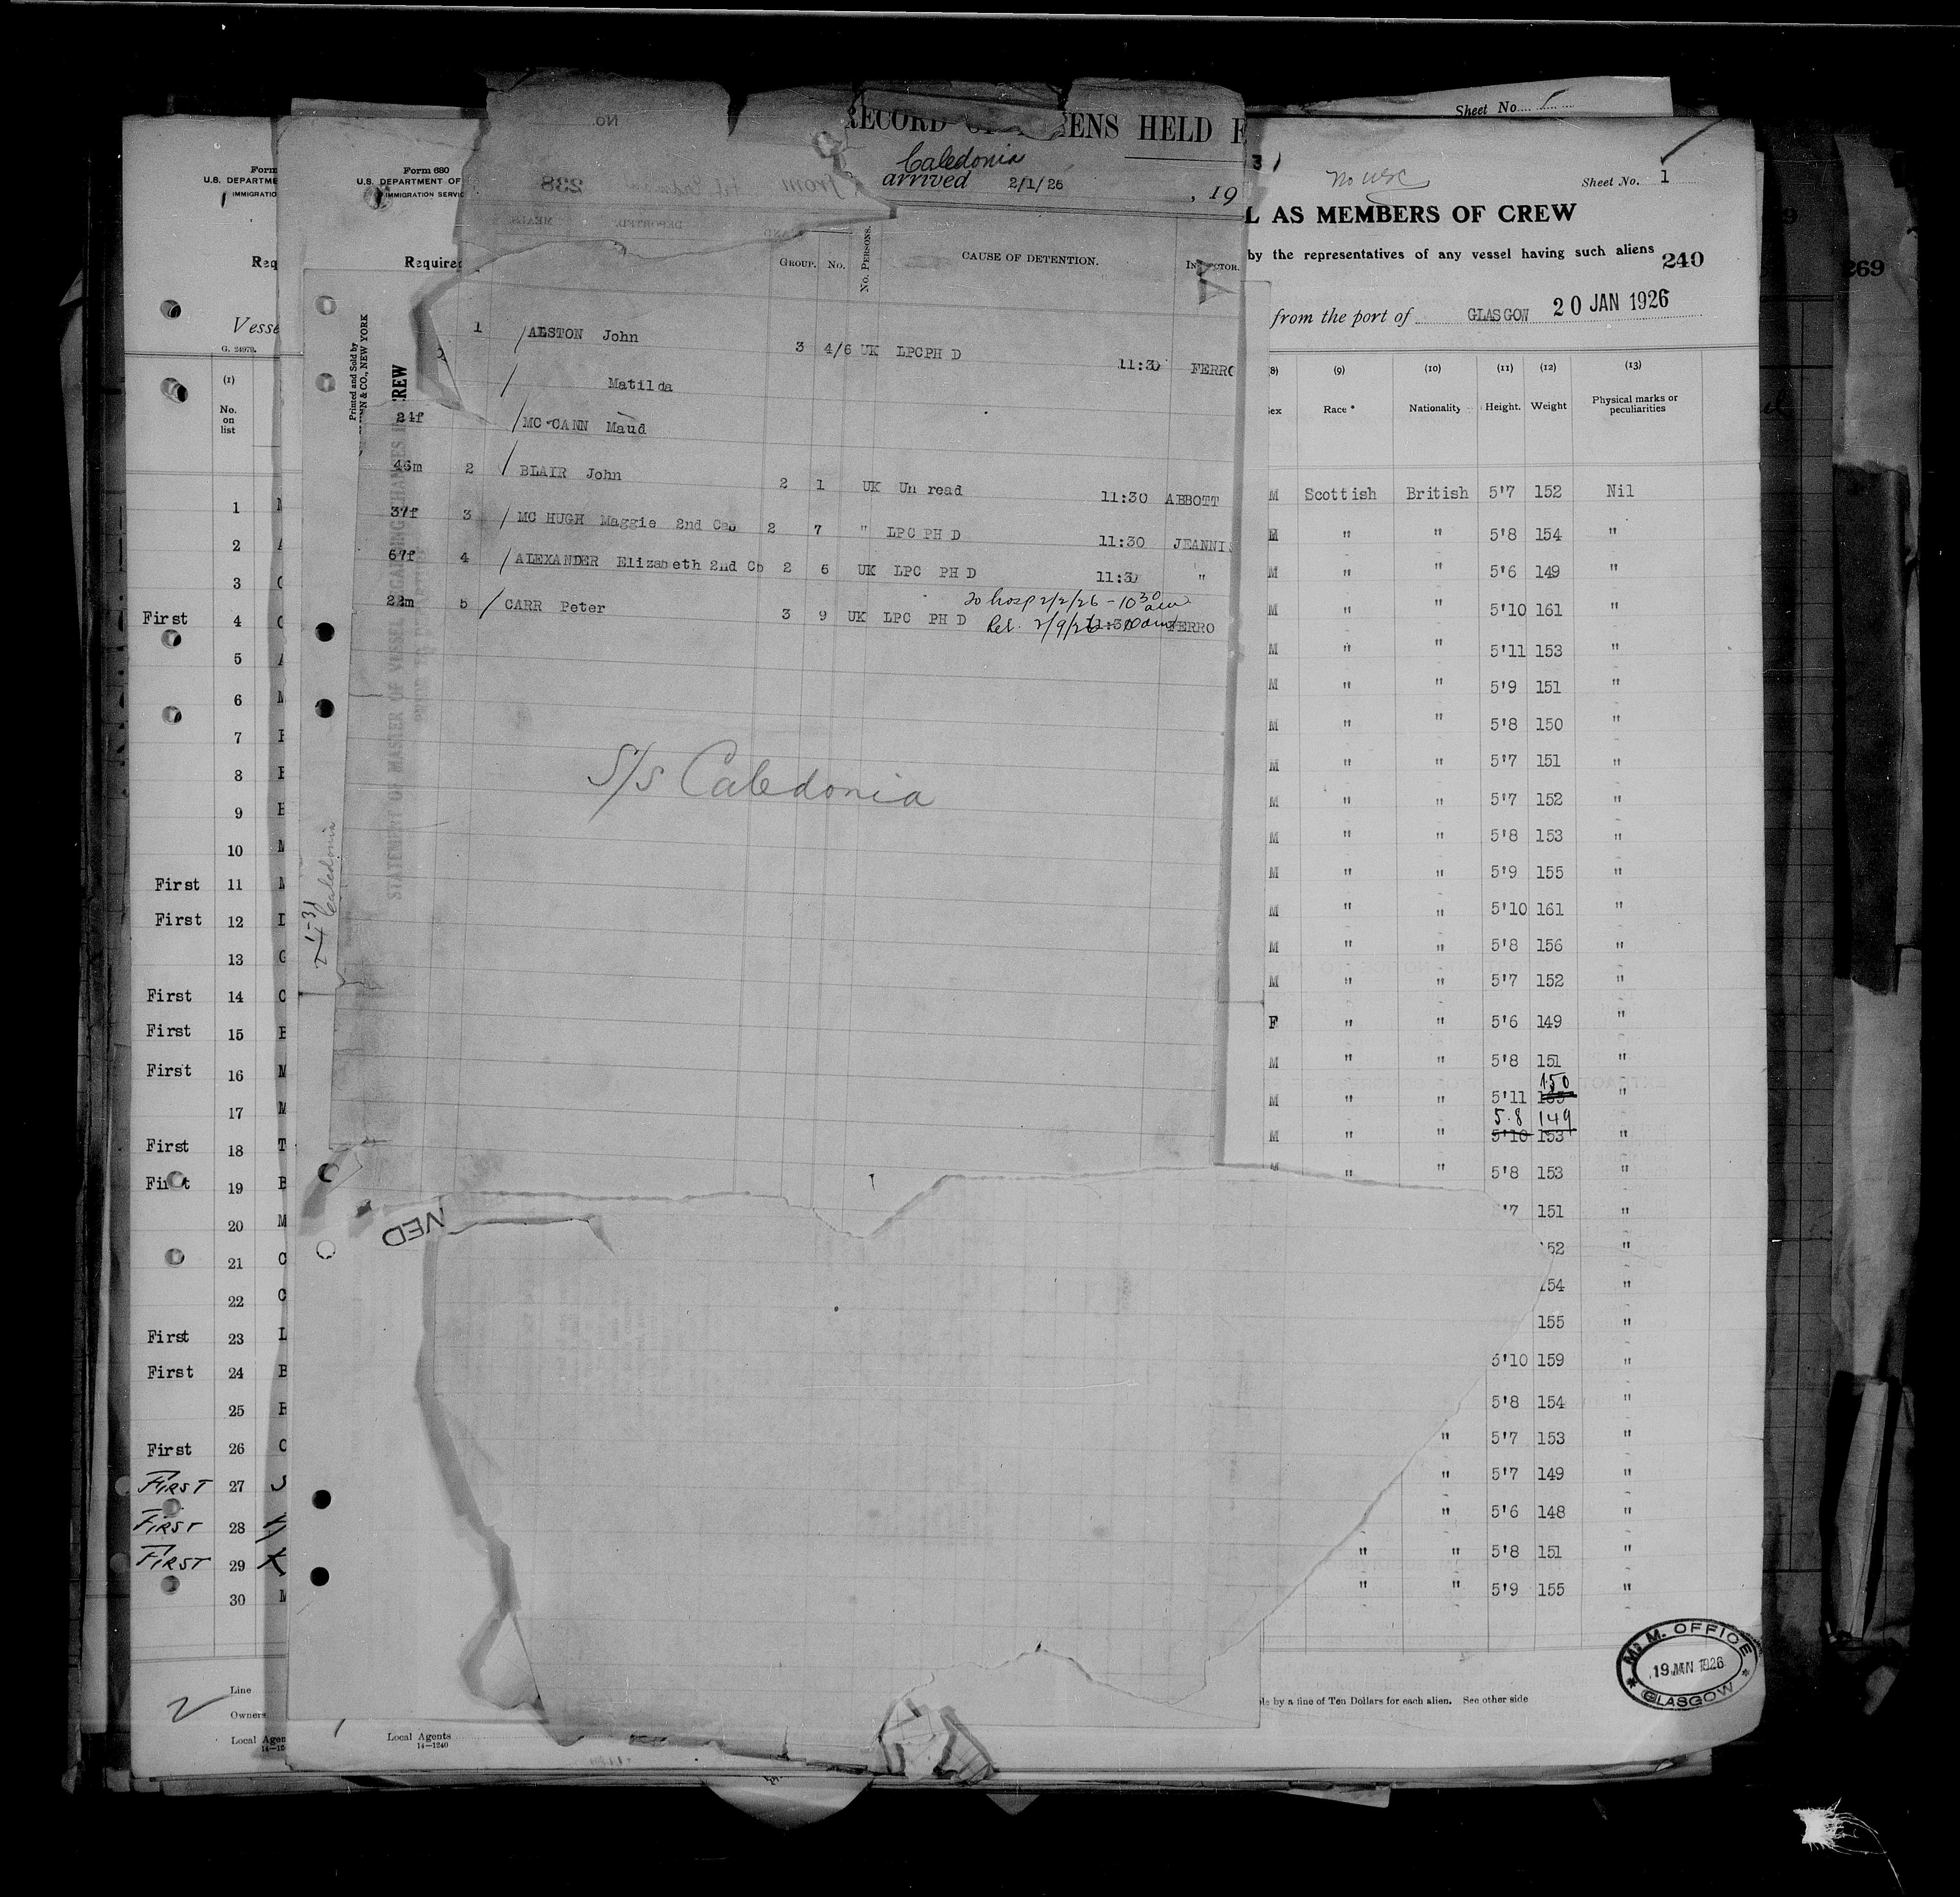 Sheet No.
No.
RECORD OF ALIENS HELD F
Caledonia
arrived 2/1/26 , 19
238 from
MEALS DEPORTED AND
Form
U.S. DEPARTME
IMMIGRATIO
Req
Vesse
G. 24970.
Form 680
U.S. DEPARTMENT OF
IMMIGRATION SERVIC
Required
Printed and Sold by
NN & CO., NEW YORK
CREW
GROUP. No. No. PERSONS. CAUSE OF DETENTION. INSPECTOR.
1 / ALSTON John 3 4/6 UK LPCPH D 11:30 FERRO
/ Matilda
24f / MC CANN Maud
46m 2 / BLAIR John 2 1 UK Un read 11:30 ABBOTT
37f 3 / MC HUGH Maggie 2nd Cab 2 7 " LPC PH D 11:30 JEANNIS
67f 4 / ALEXANDER Elizabeth 2nd Cb 2 6 UK LPC PH D 11:30 "
To hosp 2/2/26 - 10 30 am
22m 5 / CARR Peter 3 9 UK LPC PH D 11:30 FERRO
Rel. 2/9/26
S/s Caledonia
STATEMENT OF MASTER OF VESSEL REGARDING CHANGES IN
Caledonia
NED
No use
Sheet No. 1
L AS MEMBERS OF CREW
by the representatives of any vessel having such aliens
240
from the port of GLASGOW 20 JAN 1926
269
(1)
No. on list
1 M
2 A
3 C
First 4 C
5 A
6 M
7
8
9
10 M
First 11 M
First 12 D
13 G
First 14 C
First 15
First 16 M
17 M
First 18 T
First 19 B
20 M
21 C
22 C
First 23 L
First 24 B
25
First 26 C
FIRST 27
FIRST 28
FIRST 29
30 M
(8) (9) (10) (11) (12) (13)
Sex Race * Nationality Height. Weight Physical marks or peculiarities
M Scottish British 5'7 152 Nil
M " " 5'8 154 "
M " " 5'6 149 "
M " " 5'10 161 "
M " " 5'11 153 "
M " " 5'9 151 "
M " " 5'8 150 "
M " " 5'7 151 "
M " " 5'7 152 "
M " " 5'8 153 "
M " " 5'9 155 "
M " " 5'10 161 "
M " " 5'8 156 "
M " " 5'7 152 "
F " " 5'6 149 "
M " " 5'8 151 "
150
M " " 5'11 "
5.8 149
M " " 5'10 153 "
M " " 5'8 153 "
'7 151 "
52 "
154 "
155 "
5'10 159 "
5'8 154 "
" 5'7 153 "
" 5'7 149 "
" 5'6 148 "
" " 5'8 151 "
" " 5'9 155 "
le by a fine of Ten Dollars for each alien. See other side
M. M. OFFICE
19 JAN 1926
GLASGOW
2
Line
Owners
Local Agen
14—12
Local Agents
14—1240